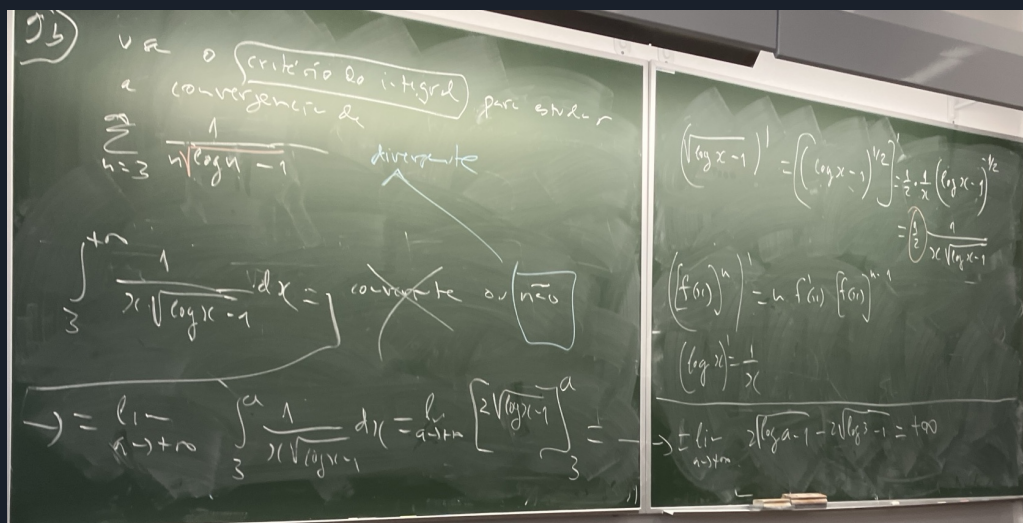 9b)
use o critério do integral para estudar
a convergência de
∑_{n=3}^{∞} 1/(n√(log n - 1))
divergente
∫_3^{+∞} 1/(x√(log x - 1)) dx = convergente ou não
→ = lim_{a→+∞} ∫_3^a 1/(x√(log x - 1)) dx = lim_{a→+∞} [2√(log x - 1)]_3^a =
(√(log x - 1))' = [(log x - 1)^{1/2}]' = 1/2 · 1/x (log x - 1)^{-1/2}
= 1/2 1/(x√(log x - 1))
([f(x)]^n)' = n f'(x) [f(x)]^{n-1}
(log x)' = 1/x
→ = lim_{a→+∞} 2√(log a - 1) - 2√(log 3 - 1) = +∞